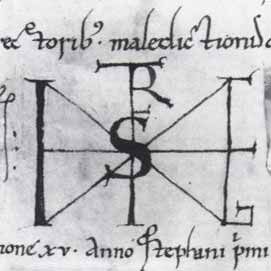 ectorib; · maledictionid
T
R
S
E
ione xv · Anno Stephani pmi